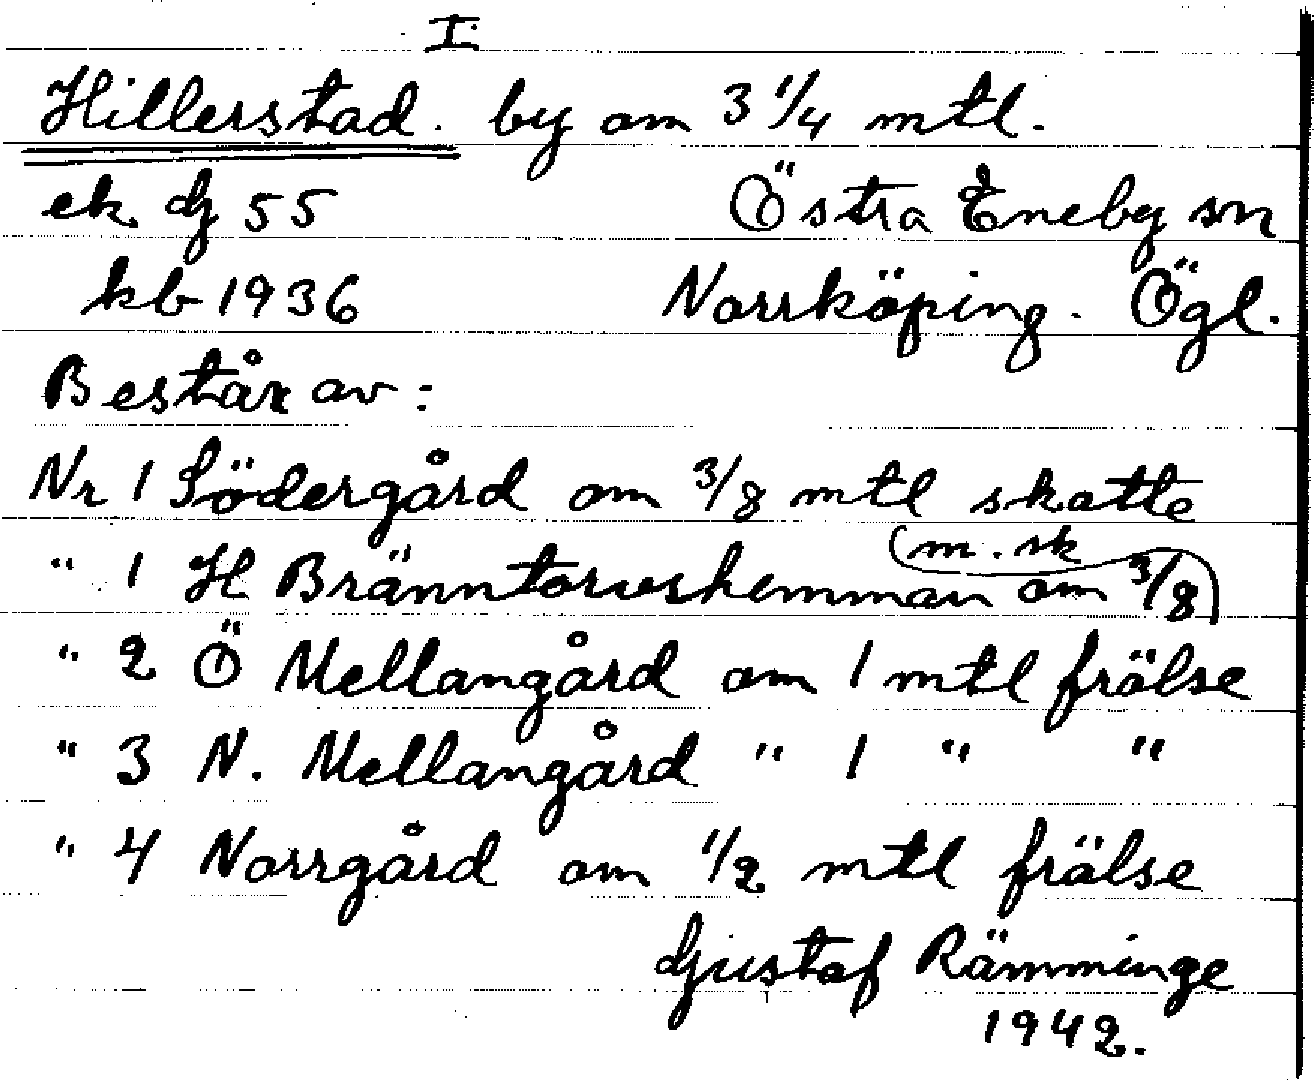 I.
Hillerstad. by om 3 1/4 mtl.
ek dg 55 Östra Eneby sn
kb 1936 Norrköping. Ögl.
Består av:
Nr 1 Södergård om 3/8 mtl skatte
" 1 H Bränntorvshemman om 3/8 (m. sk)
" 2 Ö Mellangård om 1 mtl frälse
" 3 N. Mellangård " 1 " "
" 4 Norrgård om 1/2 mtl frälse
Gustaf Rämminge
1942.